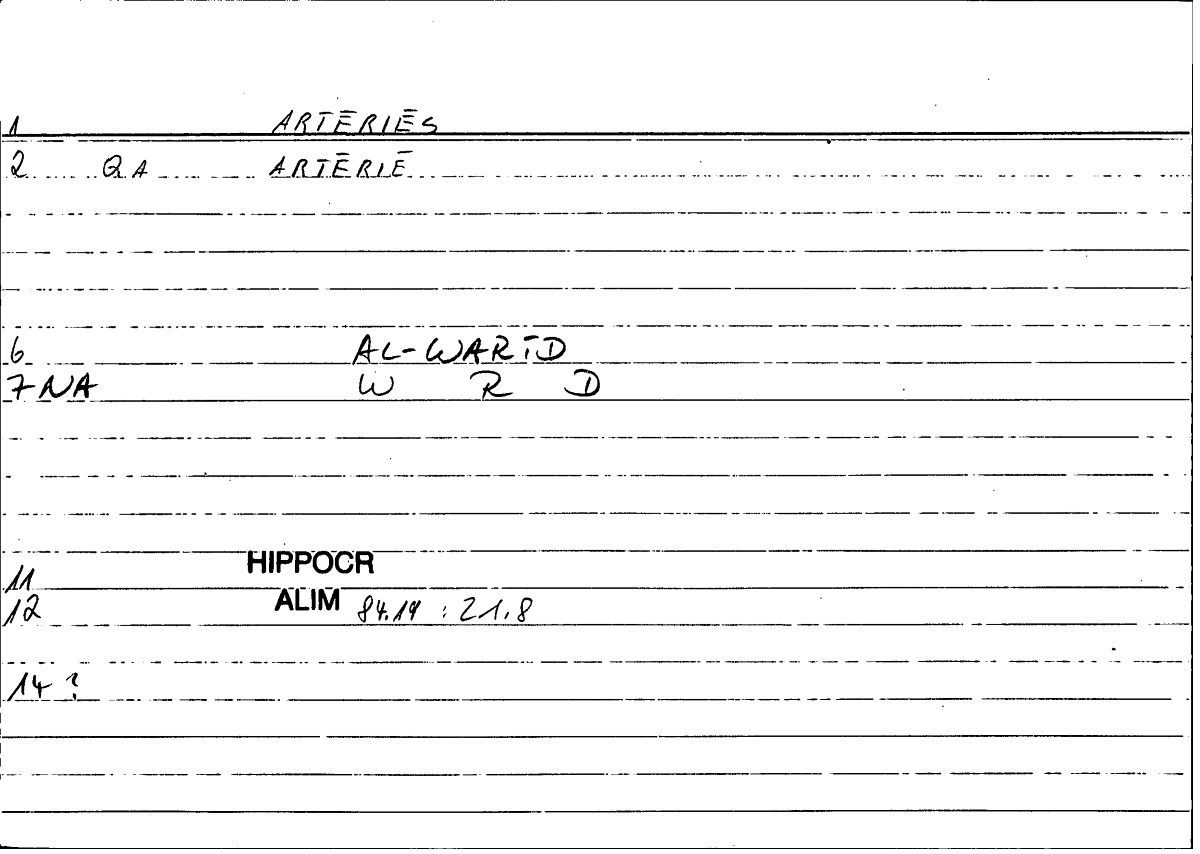 1 ARTĒRIĒS
2 QA ARTĒRIĒ
6 AL-WARĪD
7 NA W R D
11 HIPPOCR
12 ALIM 84.19 : 21.8
14 ?